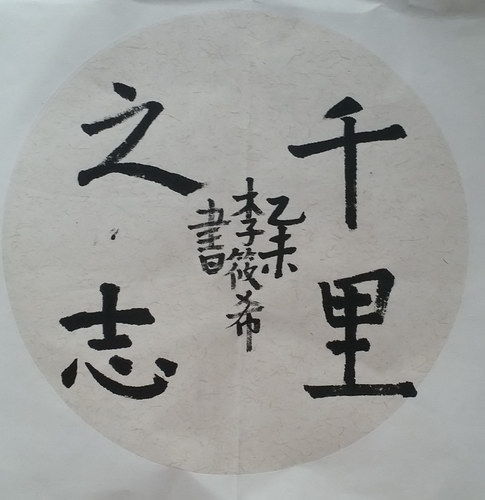 千里
之志
乙未
李筱希
書